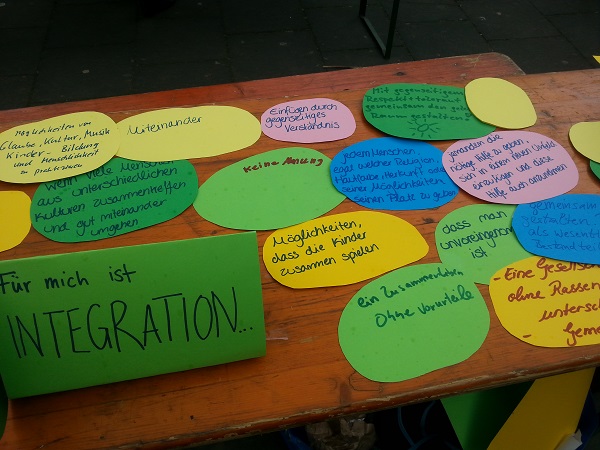 Möglichkeiten von
Glaube, Kultur, Musik
Kinder - Bildung
und Menschlichkeit
zu praktizieren
Miteinander
Einfügen durch
gegenseitiges
Verständnis
Mit gegenseitigem
Respekt + toleranz
gemeinsam den
Raum gestalten
Wenn viele Menschen
aus unterschiedlichen
Kulturen zusammenhelfen
und gut miteinander
umgehen
Keine Ahnung
jedem Menschen,
egal welcher Religion,
Hautfarbe, Herkunft oder
seiner Möglichkeiten
seinen Platz zu geben
jemandem die
nötige Hilfe zu geben,
sich in einem neuen Umfeld
und diese
Hilfe auch anzunehmen
Möglichkeiten,
dass die Kinder
zusammen spielen
dass man
unvoreingenom
ist
Gemeinsam
gestalten
als
Bestandteil
Ein Zusammenleben
Ohne Vorurteile
- Eine Gesellsch
ohne Rassen
untersch
Geme
Für mich ist
INTEGRATION...